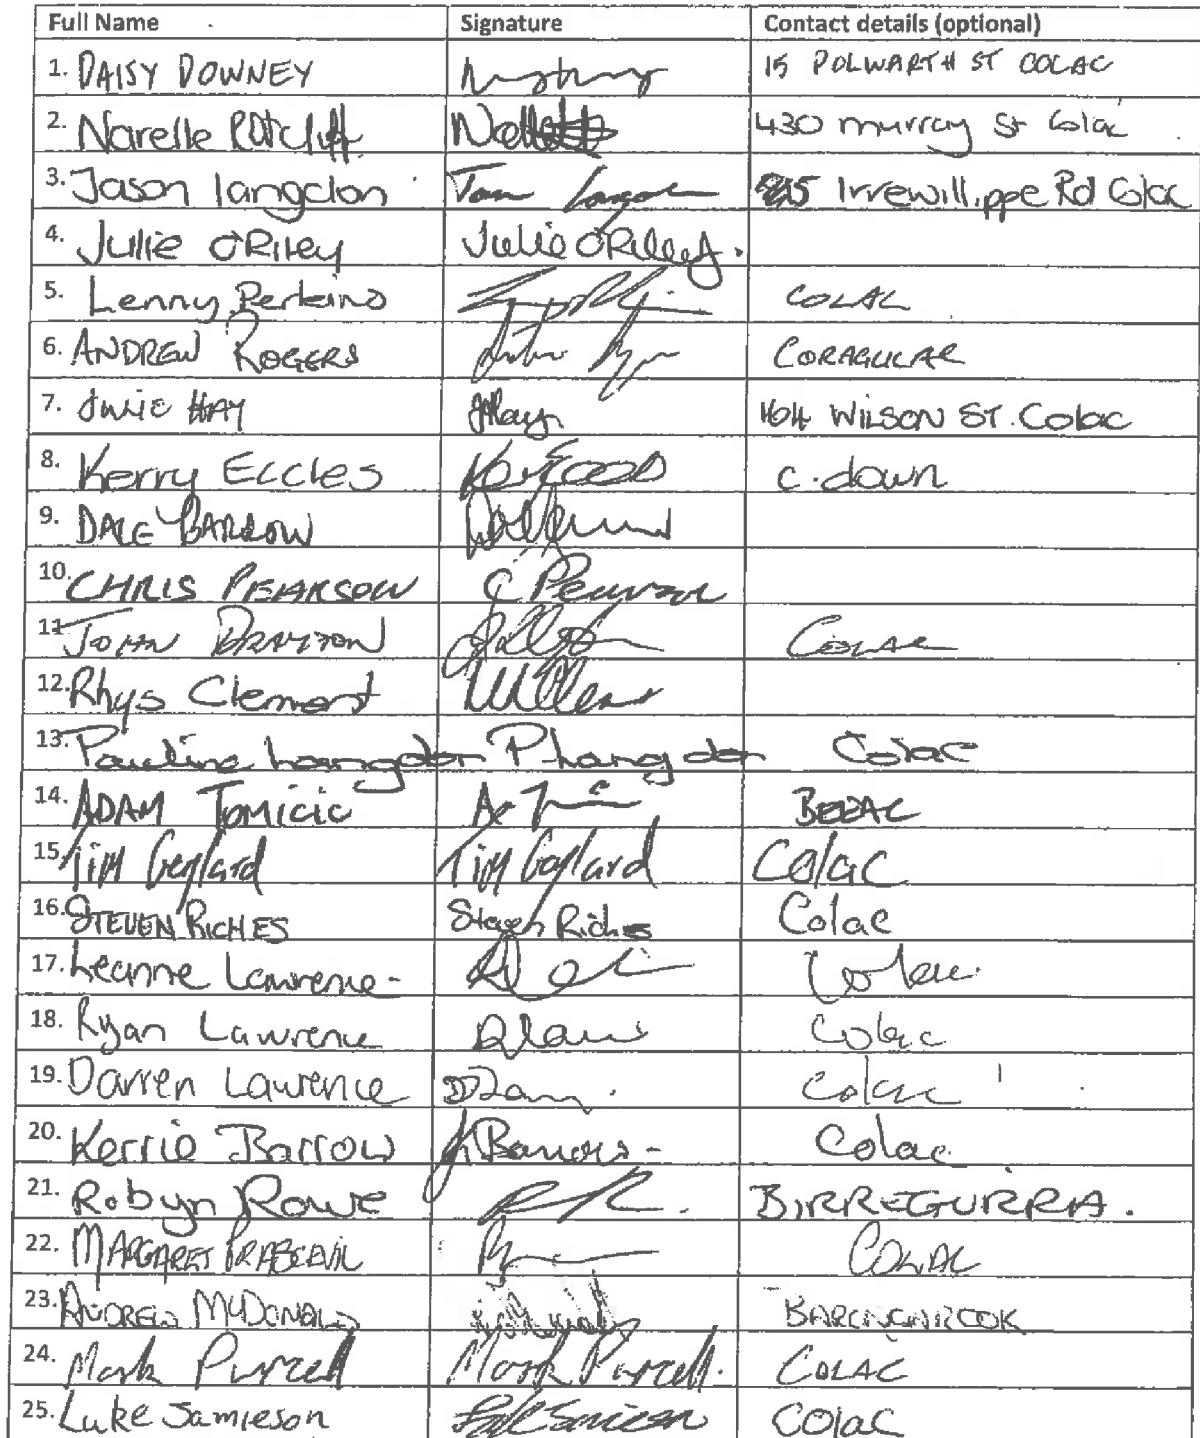 Full Name Signature Contact details (optional)
1. DAISY DOWNEY 15 POLWARTH ST COLAC
2. Narelle Ratcliff 430 murray St Colac
3. Jason langdon Irrewillippe Rd Colac
4. Julie O'Riley Julie O'Riley.
5. Lenny Perkins COLAC
6. ANDREW ROGERS CORAGULAC
7. Julie HAY JHay 464 WILSON ST. Colac
8. Kerry Eccles c.down
9. DALE BARROW
10. CHRIS PEARSON C Pearson
11 JOHN DRAYTON COLAC
12. Rhys Clement
13. Pauline Langdon P Langdon Colac
14. ADAM TOMICIC BEEAC
15. Tim Goylard Tim Goylard Colac
16. STEVEN RICHES Steven Riches Colac
17. Leanne Lawrence Colac
18. Ryan Lawrence Colac
19. Darren Lawrence Colac
20. Kerrie Barrow K Barrow Colac
21. Robyn Rowe BIRREGURRA.
22. MARGARET COLAC
23. ANDREW McDONALD BARONGAROOK
24. Mark Purcell Mark Purcell. COLAC
25. Luke Jamieson Colac